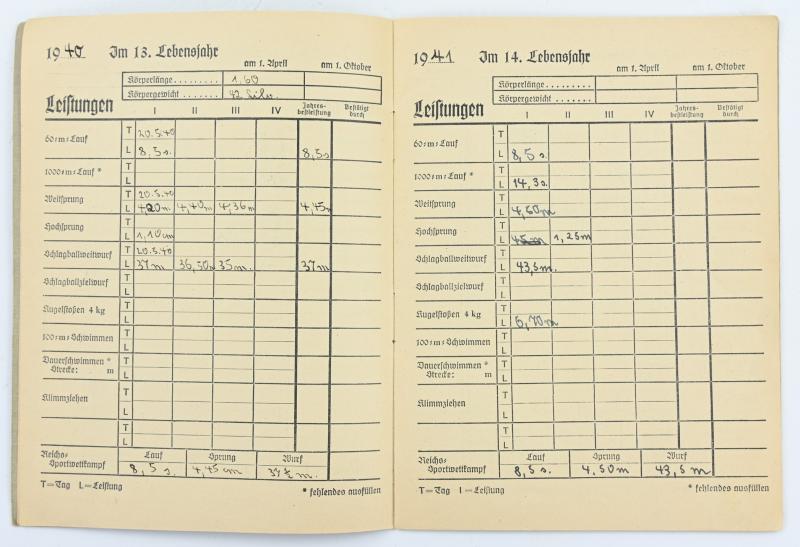 1940 Im 13. Lebensjahr
am 1. April am 1. Oktober
Körperlänge......... 1,60
Körpergewicht....... 42 Kilo.
Leistungen I II III IV Jahres-bestleistung Bestätigt durch
60=m=Lauf T 20.5.40
L 8,5 s. 8,5 s
1000=m=Lauf * T
L
Weitsprung T 20.5.40
L 4,20m. 4,40m 4,36m 4,45m
Hochsprung T
L 1,10cm
Schlagballweitwurf T 20.5.40
L 37m 36,50m 35m. 37m
Schlagballzielwurf T
L
Kugelstoßen 4 kg T
L
100=m=Schwimmen T
L
Dauerschwimmen * T
Strecke: m L
Klimmziehen T
L
T
L
Reichs-Sportwettkampf Lauf Sprung Wurf
8,5 s. 4,45 cm 37 m.
T=Tag L=Leistung * fehlendes ausfüllen
1941 Im 14. Lebensjahr
am 1. April am 1. Oktober
Körperlänge.........
Körpergewicht.......
Leistungen I II III IV Jahres-bestleistung Bestätigt durch
60=m=Lauf T
L 8,5 s.
1000=m=Lauf * T
L 14,3s.
Weitsprung T
L 4,50m
Hochsprung T
L 1,25m
Schlagballweitwurf T
L 43,5m.
Schlagballzielwurf T
L
Kugelstoßen 4 kg T
L 6,70m
100=m=Schwimmen T
L
Dauerschwimmen * T
Strecke: m L
Klimmziehen T
L
T
L
Reichs-Sportwettkampf Lauf Sprung Wurf
8,5 s. 4,50m 43,5 m
T=Tag L=Leistung * fehlendes ausfüllen